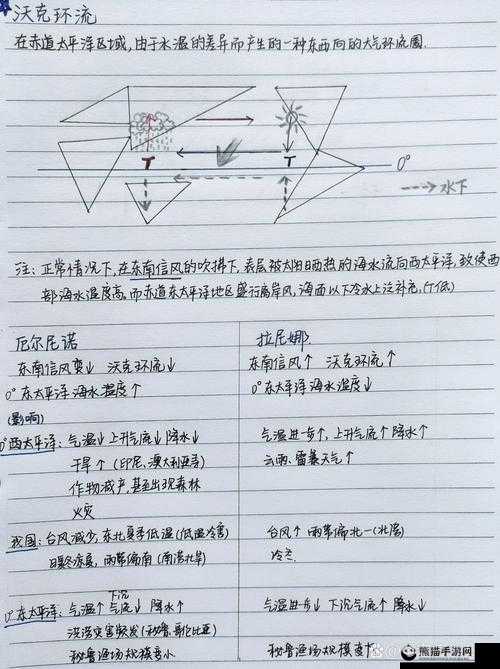 沃克环流
在赤道太平洋区域,由于水温的差异而产生的一种东西向的大气环流圈.
T
T
0°
水下
注:正常情况下,在东南信风的吹拂下,表层被太阳晒热的海水流向西太平洋,致使西
部海水温度高,而赤道东太平洋地区盛行离岸风,海面以下冷水上泛补充,(T低)
厄尔尼诺
拉尼娜.
东南信风变↓ 沃克环流↓
东南信风↑ 沃克环流↑
0°东太平洋海水温度↑
0°东太平洋海水温度↓
(影响)
0°西太平洋:气温↓上升气流↓降水↓
气温进一步↑,上升气流↑降水↑
干旱↑(印尼、澳大利亚等)
云雨、雷暴天气↑
作物减产,甚至出现森林
火灾
我国:台风减少,东北夏季低温(低温冷害)
台风↑ 雨带偏北一(北涝)
暖冬凉夏,雨带偏南(南涝北旱)
冷冬
下沉
0°东太平洋:气温↑气流↓降水↑
气温进一步↓下沉气流↑降水↓
洪涝灾害频发(秘鲁、哥伦比亚)
秘鲁渔场规模变小
秘鲁渔场规模变大
熊猫手游网